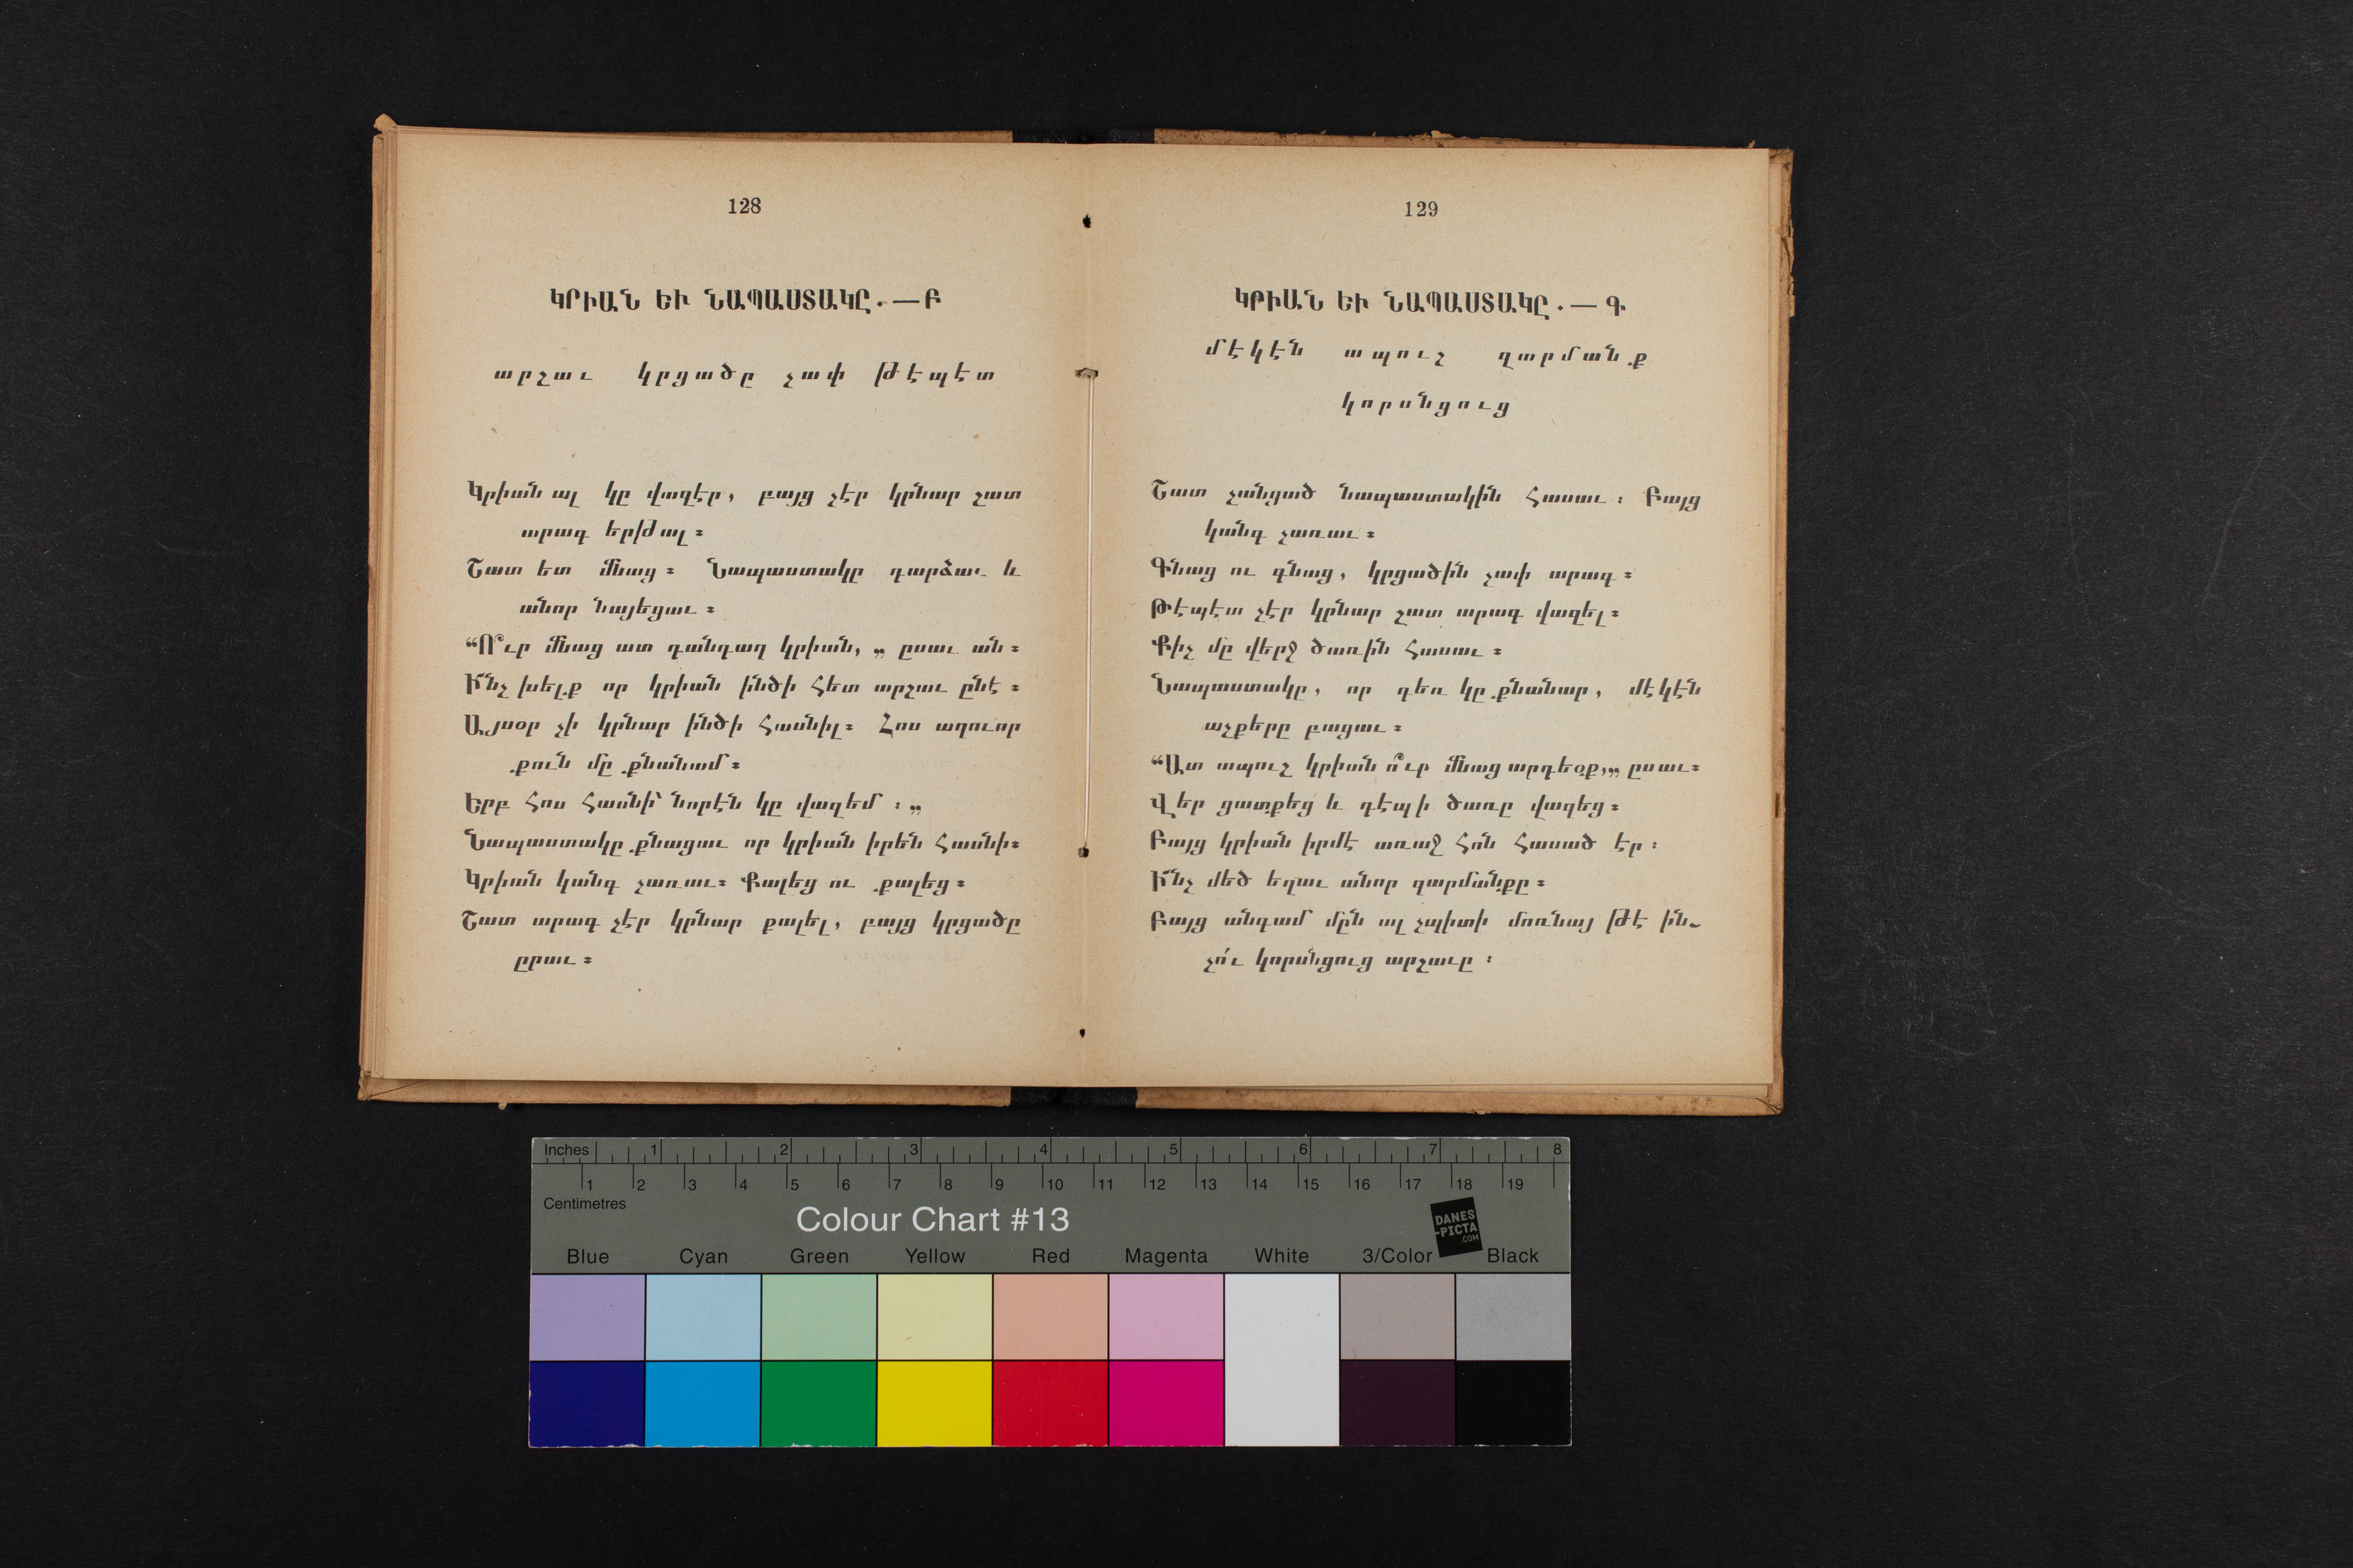 128
ԿՐԻԱՆ ԵՒ ՆԱՊԱՍՏԱԿԸ.—Բ
արշաւ կրցածը չափ թէպէտ
Կրիան ալ կը վազէր, բայց չէր կրնար շատ
արագ երթալ։
Շատ ետ մնաց։ Նապաստակը դարձաւ և
անոր նայեցաւ։
“Ո՞ւր մնաց ատ դանդաղ կրիան,„ ըսաւ ան։
Ի՞նչ խելք որ կրիան ինծի հետ արշաւ ընէ։
Այսօր չի կրնար ինծի հասնիլ։ Հոս աղուոր
քուն մը քնանամ։
Երբ հոս հասնի՝ նորէն կը վազեմ։„
Նապաստակը քնացաւ որ կրիան իրեն հասնի։
Կրիան կանգ չառաւ։ Քալեց ու քալեց։
Շատ արագ չէր կրնար քալել, բայց կրցածը
ըրաւ։
129
ԿԹԻԱՆ ԵՒ ՆԱՊԱՍՏԱԿԸ.—Գ
մէկէն ապուշ զարմանք
կորսնցուց
Շատ չանցած նապաստակին հասաւ։ Բայց
կանգ չառաւ։
Գնաց ու գնաց, կրցածին չափ արագ։
Թէպէտ չէր կրնար շատ արագ վազել։
Քիչ մը վերջ ծառին հասաւ։
Նապաստակը, որ դեռ կը քնանար, մէկէն
աչքերը բացաւ։
“Ատ ապուշ կրիան ո՞ւր մնաց արդեօք,„ ըսաւ։
Վեր ցատքեց և դէպի ծառը վազեց։
Բայց կրիան իրմէ առաջ հոն հասած էր։
Ի՜նչ մեծ եղաւ անոր զարմանքը։
Բայց անգամ մըն ալ չպիտի մոռնայ թէ ին֊
չո՛ւ կորսնցուց արշաւը։
Inches 1 2 3 4 5 6 7 8
1 2 3 4 5 6 7 8 9 10 11 12 13 14 15 16 17 18 19
Centimetres
Colour Chart #13
DANES
-PICTA
.COM
Blue Cyan Green Yellow Red Magenta White 3/Color Black